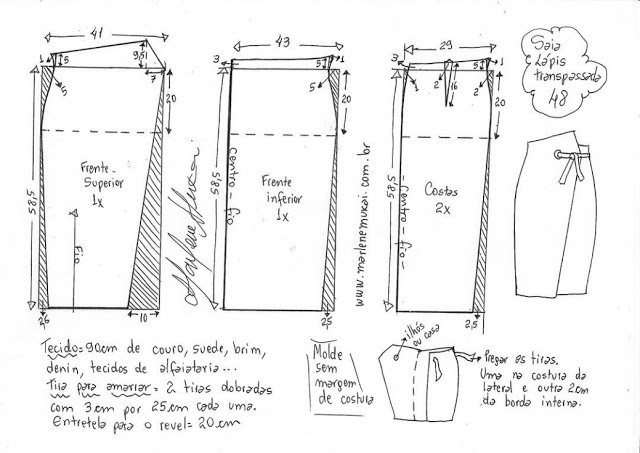 41
1
5
9,5
7
5
20
58,5
Frente
Superior
1x
Fio
26
10
43
3
5
1
5
20
58,5
centro - fio
Frente
inferior
1x
25
www.marlenemukai.com.br
29
3
1
2
16
2
5
1
20
58,5
- Centro - fio -
Costas
2x
2,5
Saia
Lápis
transpassada
48
Tecido = 90cm de couro, suede, brim,
denin, tecidos de alfaiataria...
Tira para amarrar = 2 tiras dobradas
com 3cm por 25cm cada uma.
Entretela para o revel = 20cm
Molde
sem
margem
de costura
ilhós
ou casa
Pregar as tiras.
Uma na costura da
lateral e outra 2cm
da borda interna.